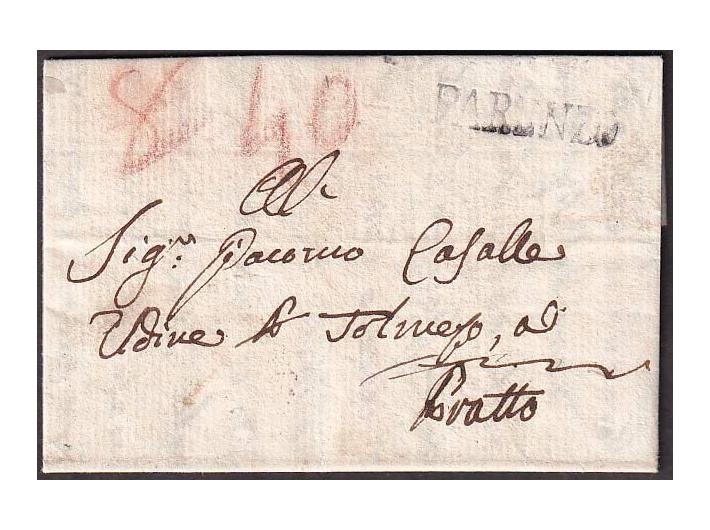 40 PARENZO
All
Sigr. Giacomo Casalle
Udine Tolmezo, ad
Pratto